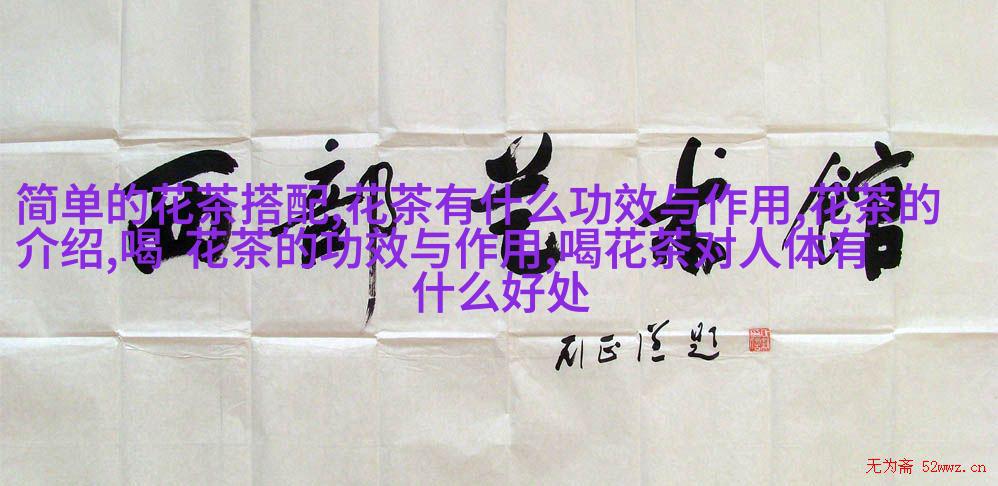 西部艺术馆
简单的花茶搭配,花茶有什么功效与作用,花茶的
介绍,喝 花茶的功效与作用,喝花茶对人体有
什么好处
题
无为斋 52wwz.cn